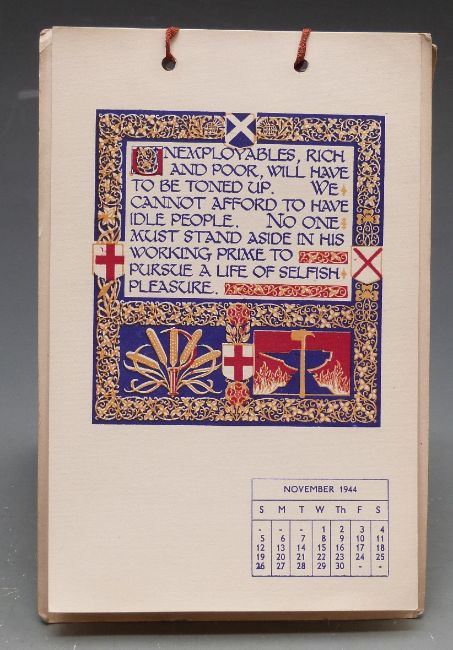 UNEMPLOYABLES, RICH
AND POOR, WILL HAVE
TO BE TONED UP. WE
CANNOT AFFORD TO HAVE
IDLE PEOPLE. NO ONE
MUST STAND ASIDE IN HIS
WORKING PRIME TO
PURSUE A LIFE OF SELFISH
PLEASURE.
NOVEMBER 1944
S M T W Th F S
- - - 1 2 3 4
5 6 7 8 9 10 11
12 13 14 15 16 17 18
19 20 21 22 23 24 25
26 27 28 29 30 - -